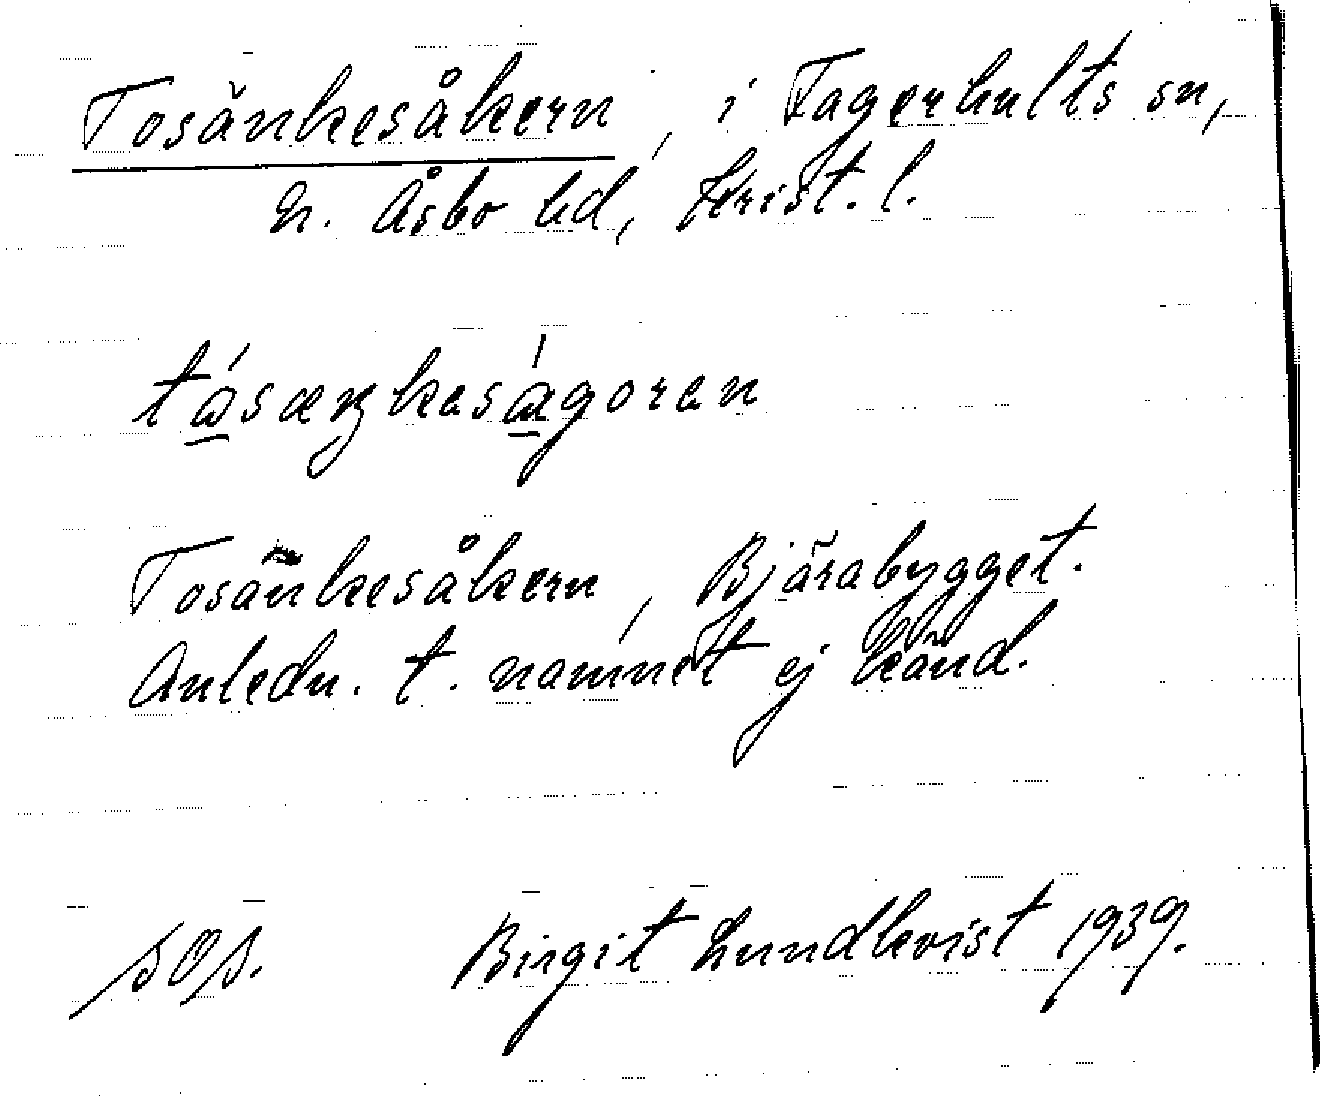 Tosänkesåkern, i Fagerhults sn,
N. Åsbo hd, Krist. l.
tásæŋkaságoran
Tosänkesåkern, Bjärabygget.
Anledn. t. namnet ej känd.
sos.
Birgit Lundkvist 1939.